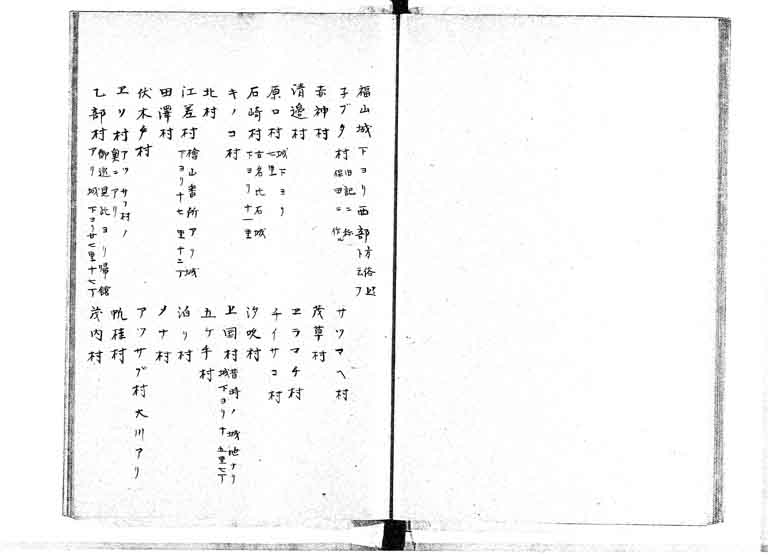 福山城下ヨリ西部方俗上下ト云フ
子ブタ村旧記ニ称保田ニ作ル サツマヘ村
赤神村 茂草村
清邊村 ヱラマチ村
原口村城下ヨリ七里 チイサコ村
石崎村古名比石城下ヨリ十一里 汐吹村
キノコ村 上国村昔時ノ城地ナリ城下ヨリ十五里七丁
北村 五ケ手村
江差村檜山番所アリ城下ヨリ十七里十二丁 泊リ村
田澤村 メナ村
伏木戸村 アツサブ村大川アリ
ヱソ村アツサフ村ノ奥ニアリ 帆桂村
乙部村御巡見此ヨリ帰館アリ城下ヨリ廿七里十七丁 茂内村